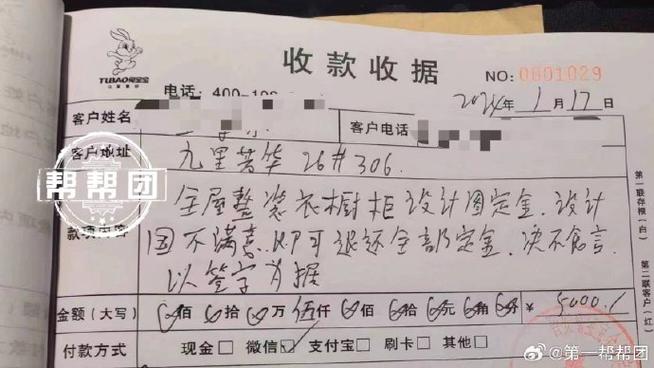 收款收据
TUBAO兔宝宝
NO:0801029
电话:400-108
2024年1月17日
客户姓名
客户电话
客户地址 九里菁华 26# 306.
款项内容 全屋整装衣橱柜设计图定金.设计
图不满意.即可退还全部定金.决不食言.
以签字为据
金额(大写) 佰 拾 万 伍仟 佰 拾 元 角 分 ¥ 5000.
付款方式 现金□ 微信☑ 支付宝□ 刷卡□ 其他□
第一联存根(白) 第二联客户(红)
帮帮团
@第一帮帮团